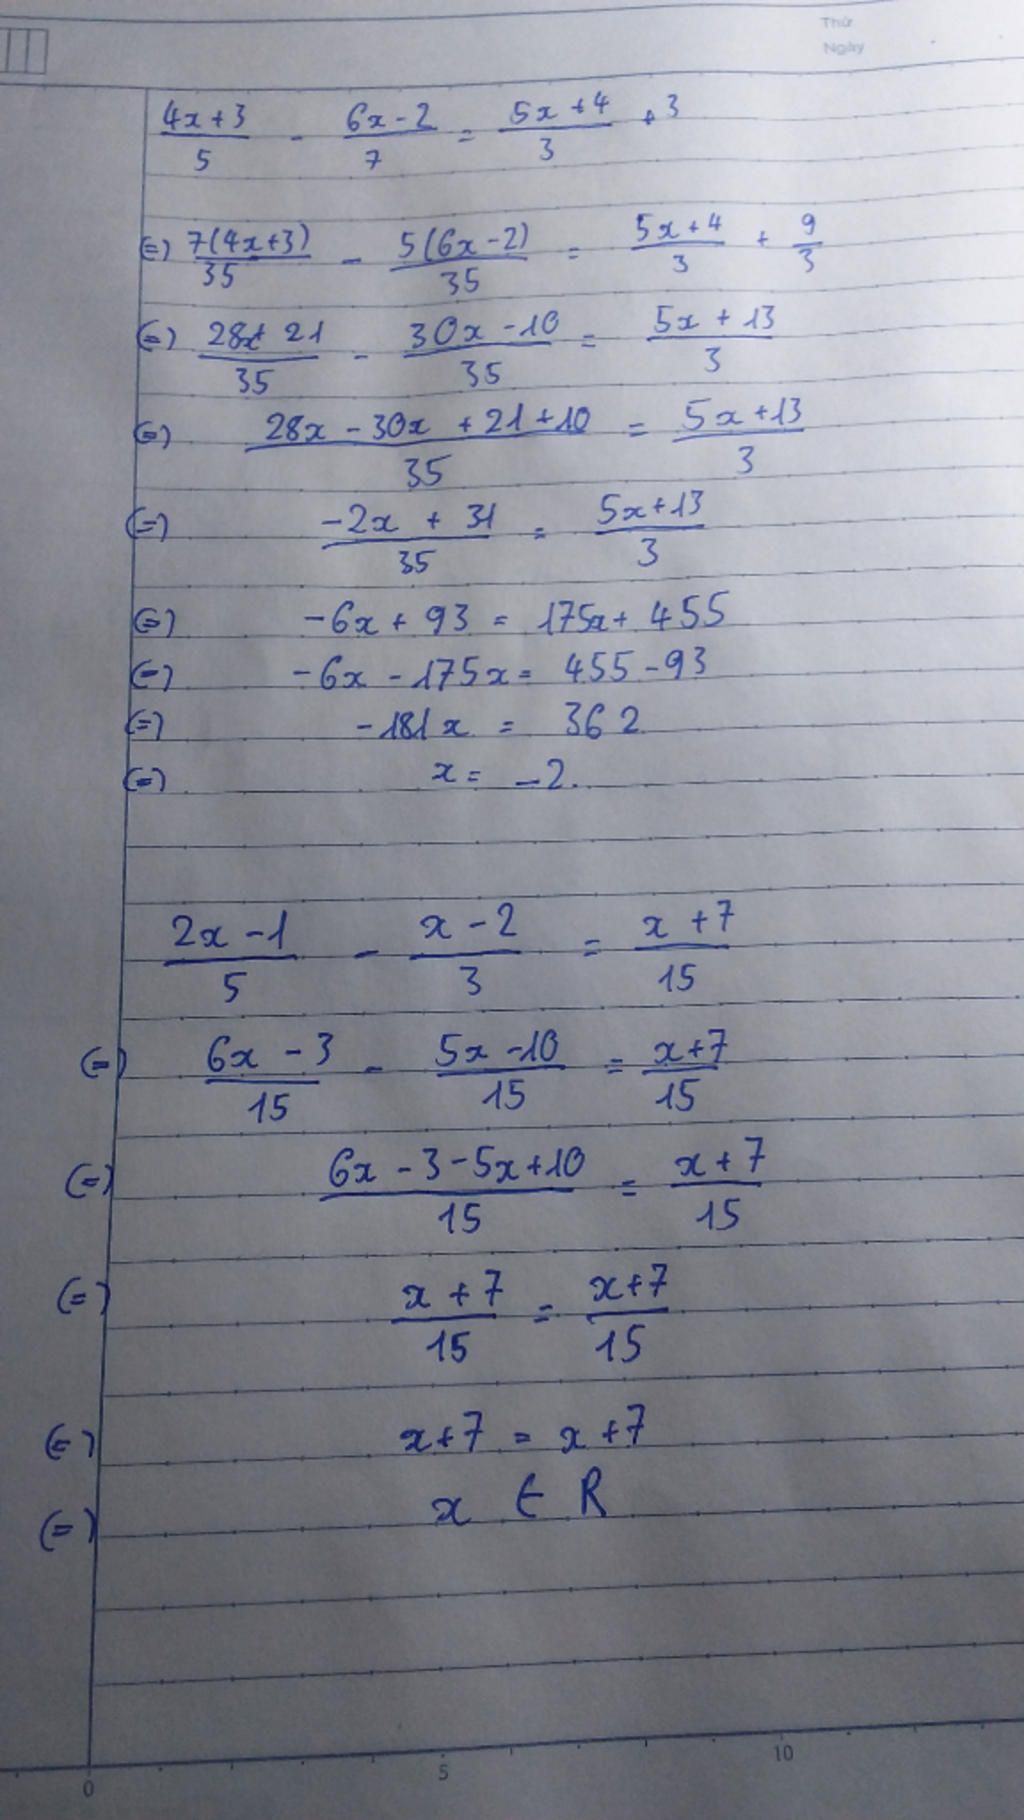 Thứ
Ngày
(4x+3)/5 - (6x-2)/7 = (5x+4)/3 + 3
(=) 7(4x+3)/35 - 5(6x-2)/35 = (5x+4)/3 + 9/3
(=) (28x+21)/35 - (30x-10)/35 = (5x+13)/3
(=) (28x-30x+21+10)/35 = (5x+13)/3
(=) (-2x+31)/35 = (5x+13)/3
(=) -6x+93 = 175x+455
(=) -6x-175x = 455-93
(=) -181x = 362
(=) x = -2.
(2x-1)/5 - (x-2)/3 = (x+7)/15
(=) (6x-3)/15 - (5x-10)/15 = (x+7)/15
(=) (6x-3-5x+10)/15 = (x+7)/15
(=) (x+7)/15 = (x+7)/15
(=) x+7 = x+7
(=) x ∈ R
0 5 10